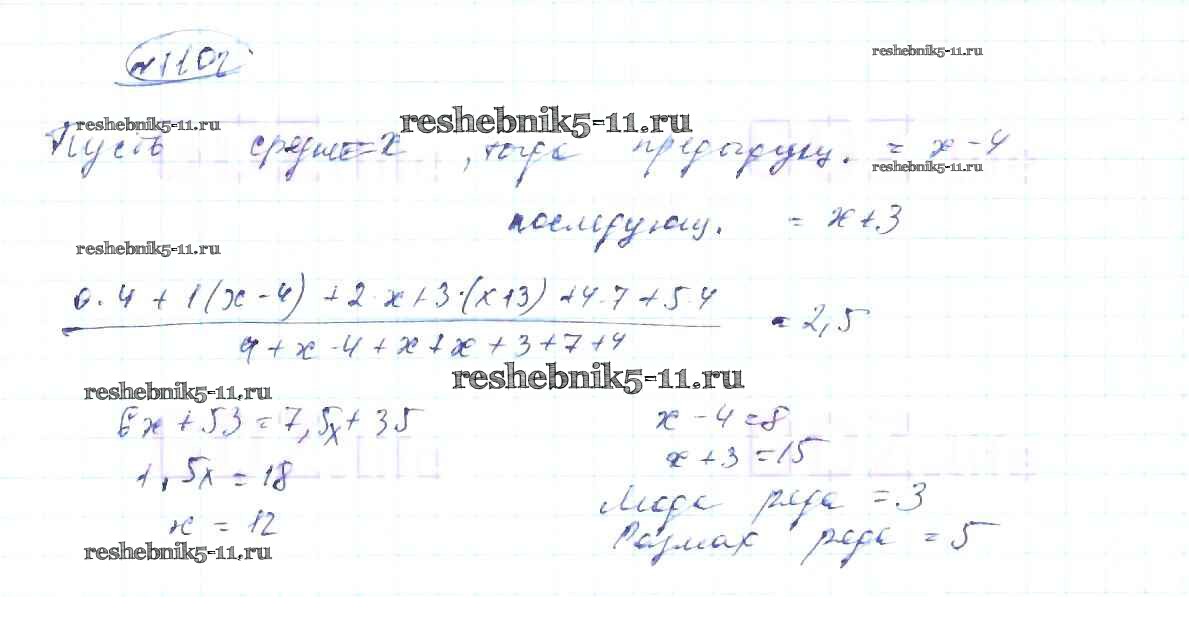 №1102
reshebnik5-11.ru
reshebnik5-11.ru
reshebnik5-11.ru
Пусть средне = x, тогда предыдущ. = x - 4
reshebnik5-11.ru
последующ. = x + 3
reshebnik5-11.ru
0·4 + 1(x - 4) + 2·x + 3·(x + 3) + 4·7 + 5·4
4 + x - 4 + x + x + 3 + 7 + 4
= 2,5
reshebnik5-11.ru
reshebnik5-11.ru
6x + 53 = 7,5x + 35
x - 4 = 8
1,5x = 18
x + 3 = 15
x = 12
Мода ряда = 3
Размах ряда = 5
reshebnik5-11.ru